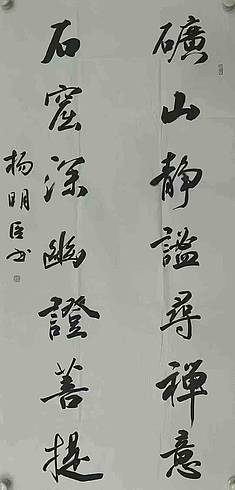 礦山靜謐尋禪意
石窟深幽證菩提
楊明臣书